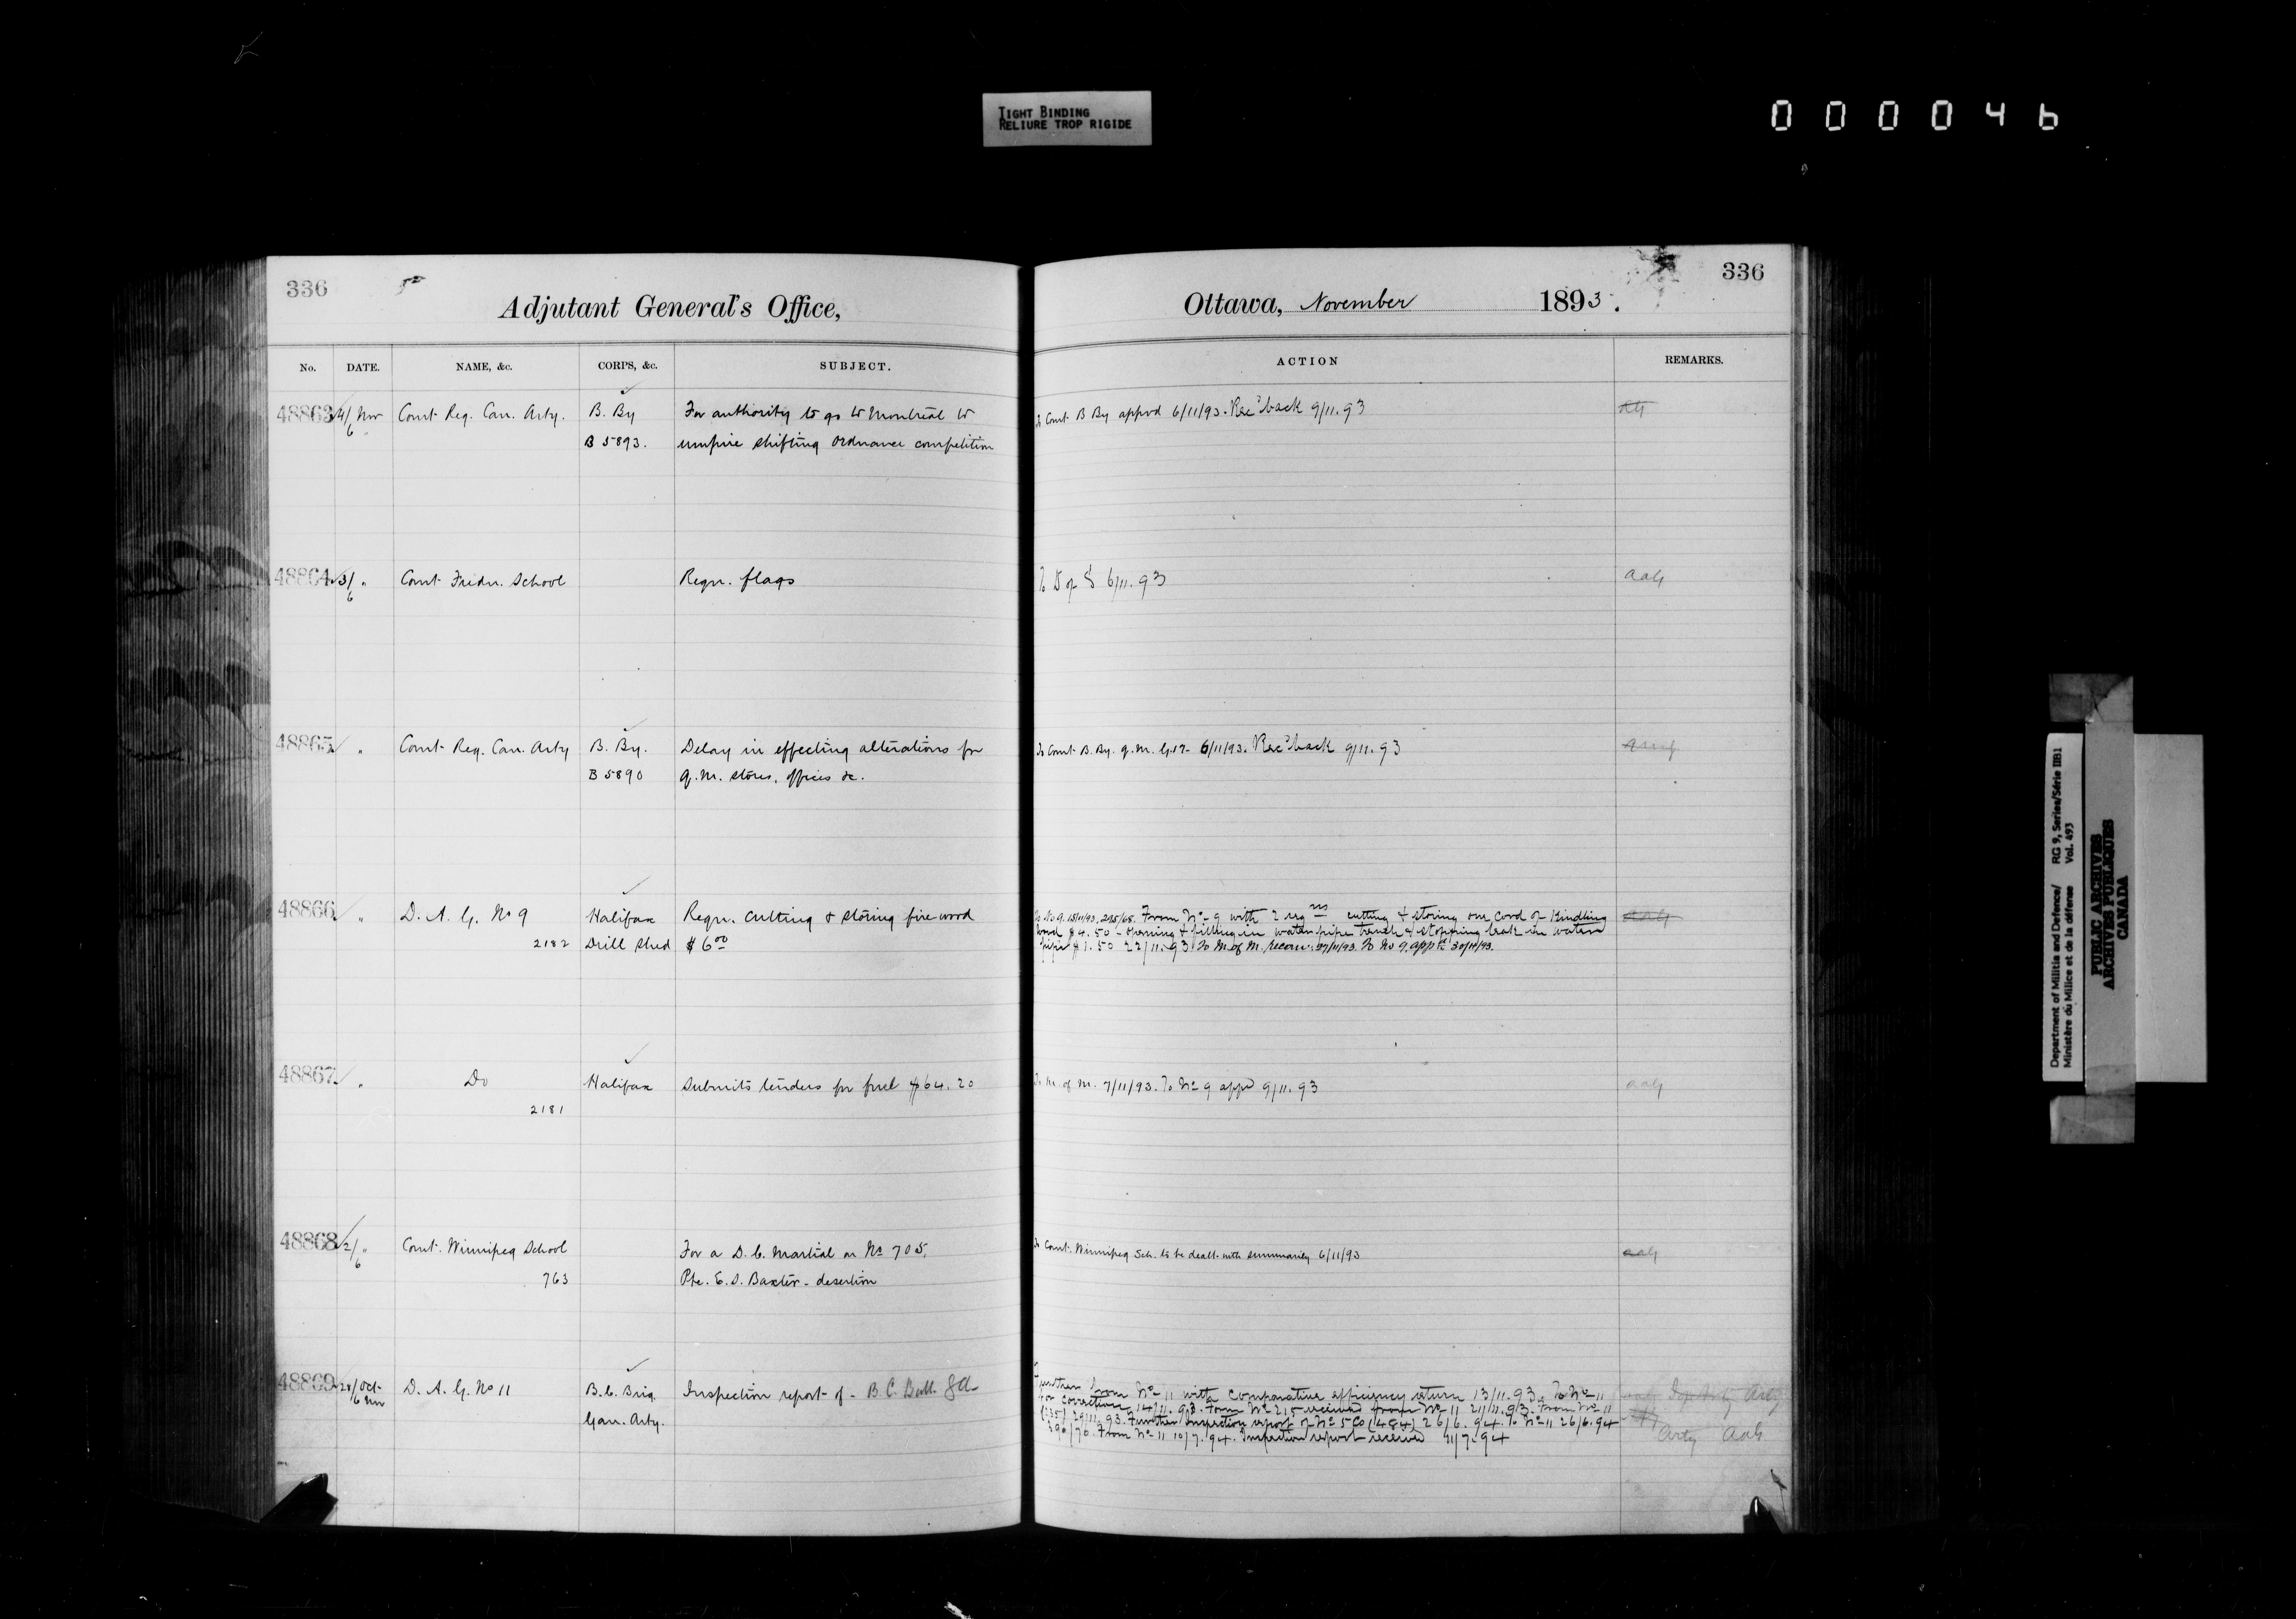 TIGHT BINDING
RELIURE TROP RIGIDE
000046
336
Adjutant General's Office,
Ottawa, November 1893.
336
No. DATE. NAME, &c. CORPS, &c. SUBJECT. ACTION REMARKS.
48863 4/6 Nov Comt Reg. Can. Arty. B. By For authority to go to Montreal to
B 5893. umpire shifting Ordnance competition
To Comt B By apprvd 6/11/93. Rec'd back 9/11.93
AG
48864 3/6 " Comt Fredn. School Reqn. flags
To D of S 6/11.93
aag
48865 " Comt Reg. Can. Arty B. By. Delay in effecting alterations for
B 5890 q.m. stores, offices &c.
To Comt B. By. q.m. G. 17- 6/11/93. Rec'd back 9/11.93
48866 " D. A. G. No 9 Halifax Reqn. cutting & storing fire wood
2182 Drill Shed $6 00
From No 9 with 2 reqns cutting & storing one cord of Kindling
wood $4.50 - Opening & filling in water pipe trench & stopping leak in water
pipe $1.50 22/11.93. To M. of M. recom: 27/11/93. To No 9. appd 30/11/93.
aag
48867 " Do Halifax Submits tenders for fuel $64.20
2181
To M. of M. 7/11/93. To No 9 appd 9/11.93
aag
48868 2/6 " Comt. Winnipeg School For a D. C. Martial on No 705,
763 Pte. E. S. Baxter - desertion
To Comt. Winnipeg Sch. to be dealt with summarily 6/11/93
aag
48869 28/Oct 6 Nov D. A. G. No 11 B.C. Brig. Inspection report of - B. C. Batt. G.A.
Gar. Arty.
Further from No 11 with Comparative efficiency return 13/11.93. To No 11
for correction 14/11.93. Form No 215 received from No 11 21/11.93. From No 11
29/11.93. Further Inspection report of No 5 Co (484) 26/6.94. To No 11 26/6.94
390/70. From No 11 10/7.94. Inspection report received 7.94
Arty AaG
Department of Militia and Defence/ RG 9, Series/Série IIB1
Ministère du Milice et de la défense Vol. 493
PUBLIC ARCHIVES
ARCHIVES PUBLIQUES
CANADA